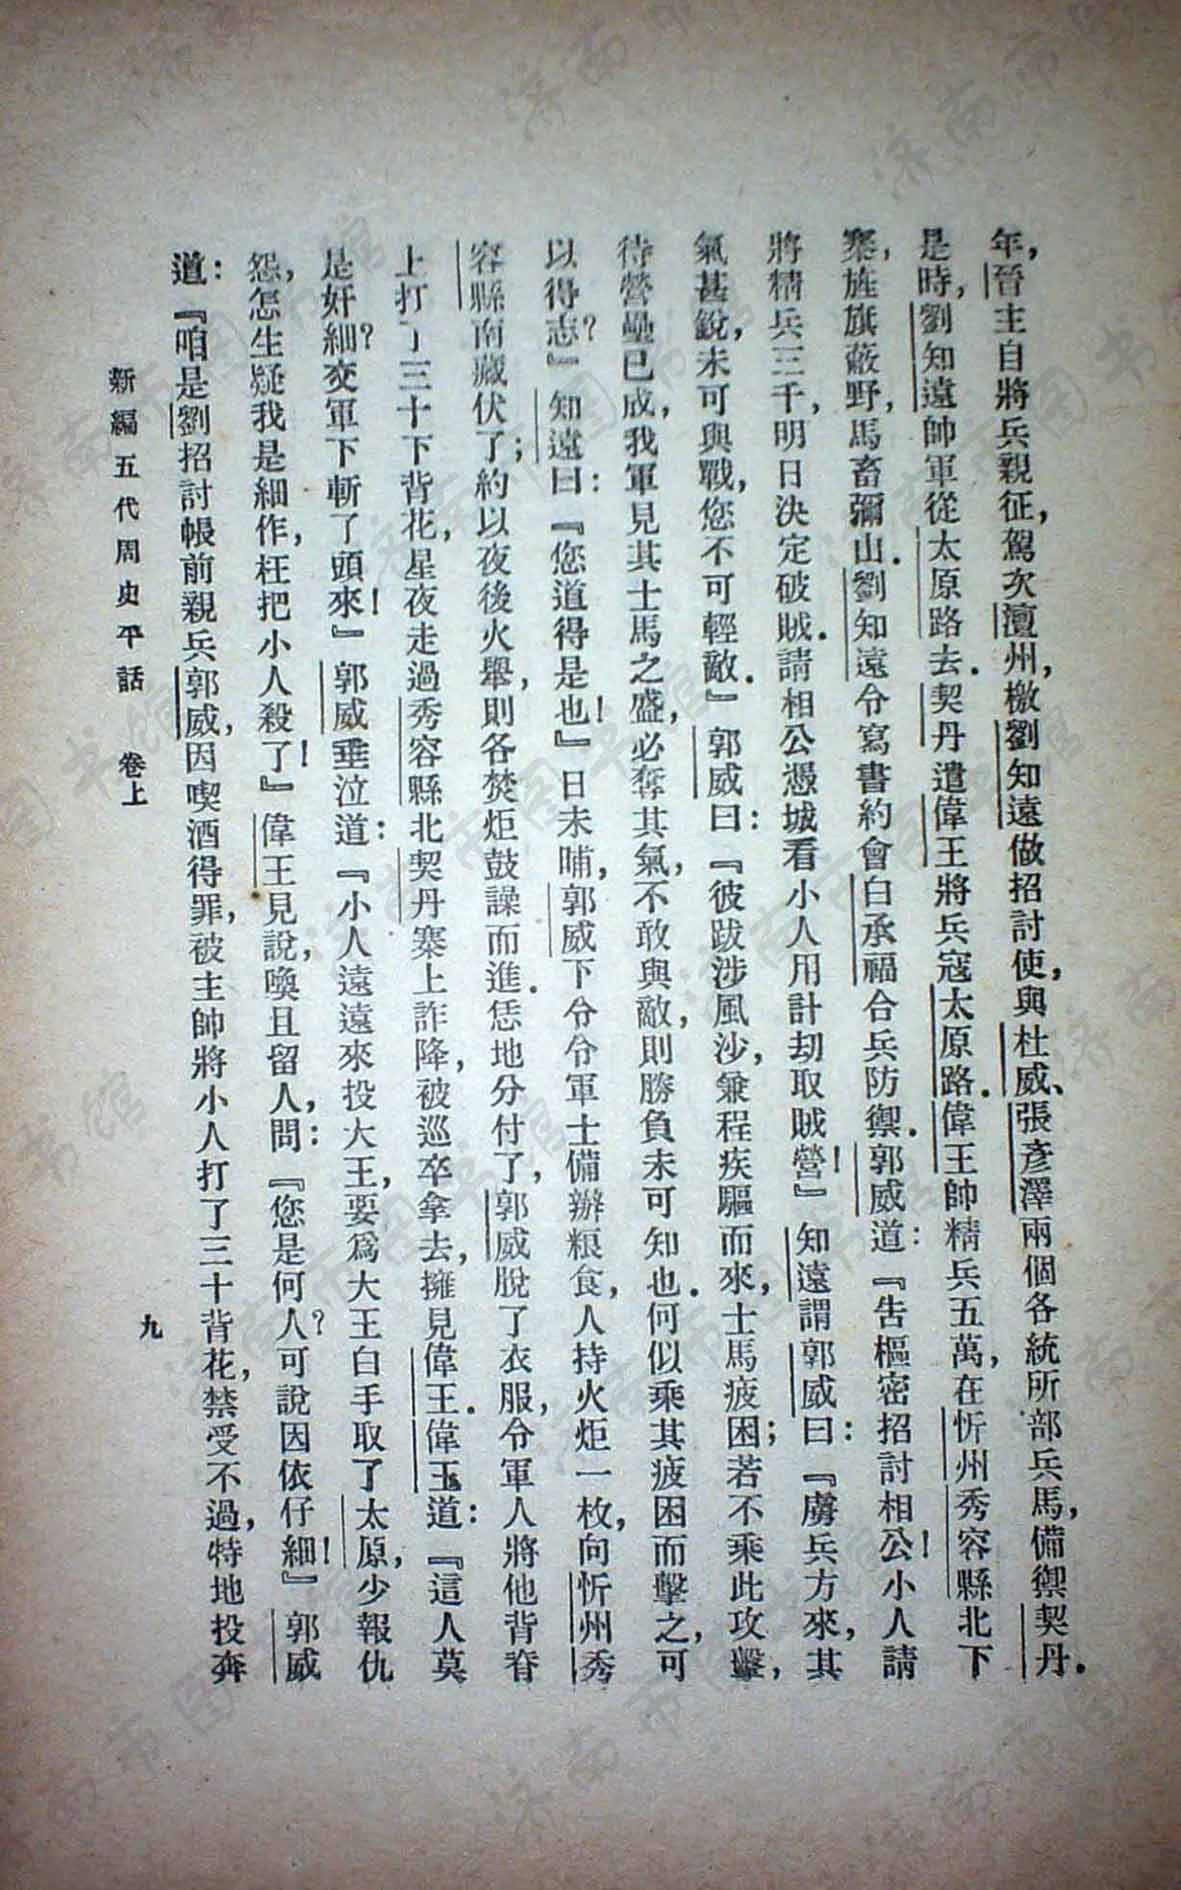 年，晉主自將兵親征，駕次澶州，檄劉知遠做招討使，與杜威、張彥澤兩個各統所部兵馬，備禦契丹．
是時，劉知遠帥軍從太原路去．契丹遣偉王將兵寇太原路．偉王帥精兵五萬，在忻州秀容縣北下
寨，旌旗蔽野，馬畜彌山．劉知遠令寫書約會白承福合兵防禦．郭威道：『告樞密招討相公！小人請
將精兵三千，明日決定破賊．請相公憑城看小人用計刧取賊營！』知遠謂郭威曰：『虜兵方來，其
氣甚銳，未可與戰，您不可輕敵．』郭威曰：『彼跋涉風沙，兼程疾驅而來，士馬疲困；若不乘此攻擊，
待營壘已成，我軍見其士馬之盛，必奪其氣，不敢與敵，則勝負未可知也．何似乘其疲困而擊之，可
以得志？』知遠曰：『您道得是也！』日未晡，郭威下令令軍士備辦粮食，人持火炬一枚，向忻州秀
容縣南藏伏了；約以夜後火舉，則各焚炬鼓譟而進．恁地分付了，郭威脫了衣服，令軍人將他背脊
上打了三十下背花，星夜走過秀容縣北契丹寨上詐降，被巡卒拿去，擁見偉王．偉王道：『這人莫
是奸細？交軍下斬了頭來！』郭威垂泣道：『小人遠遠來投大王，要爲大王白手取了太原，少報仇
怨，怎生疑我是細作，枉把小人殺了！』偉王見說，喚且留人，問：『您是何人？可說因依仔細！』郭威
道：『咱是劉招討帳前親兵郭威，因喫酒得罪，被主帥將小人打了三十背花，禁受不過，特地投奔
新編五代周史平話　卷上　九
济南市图书馆